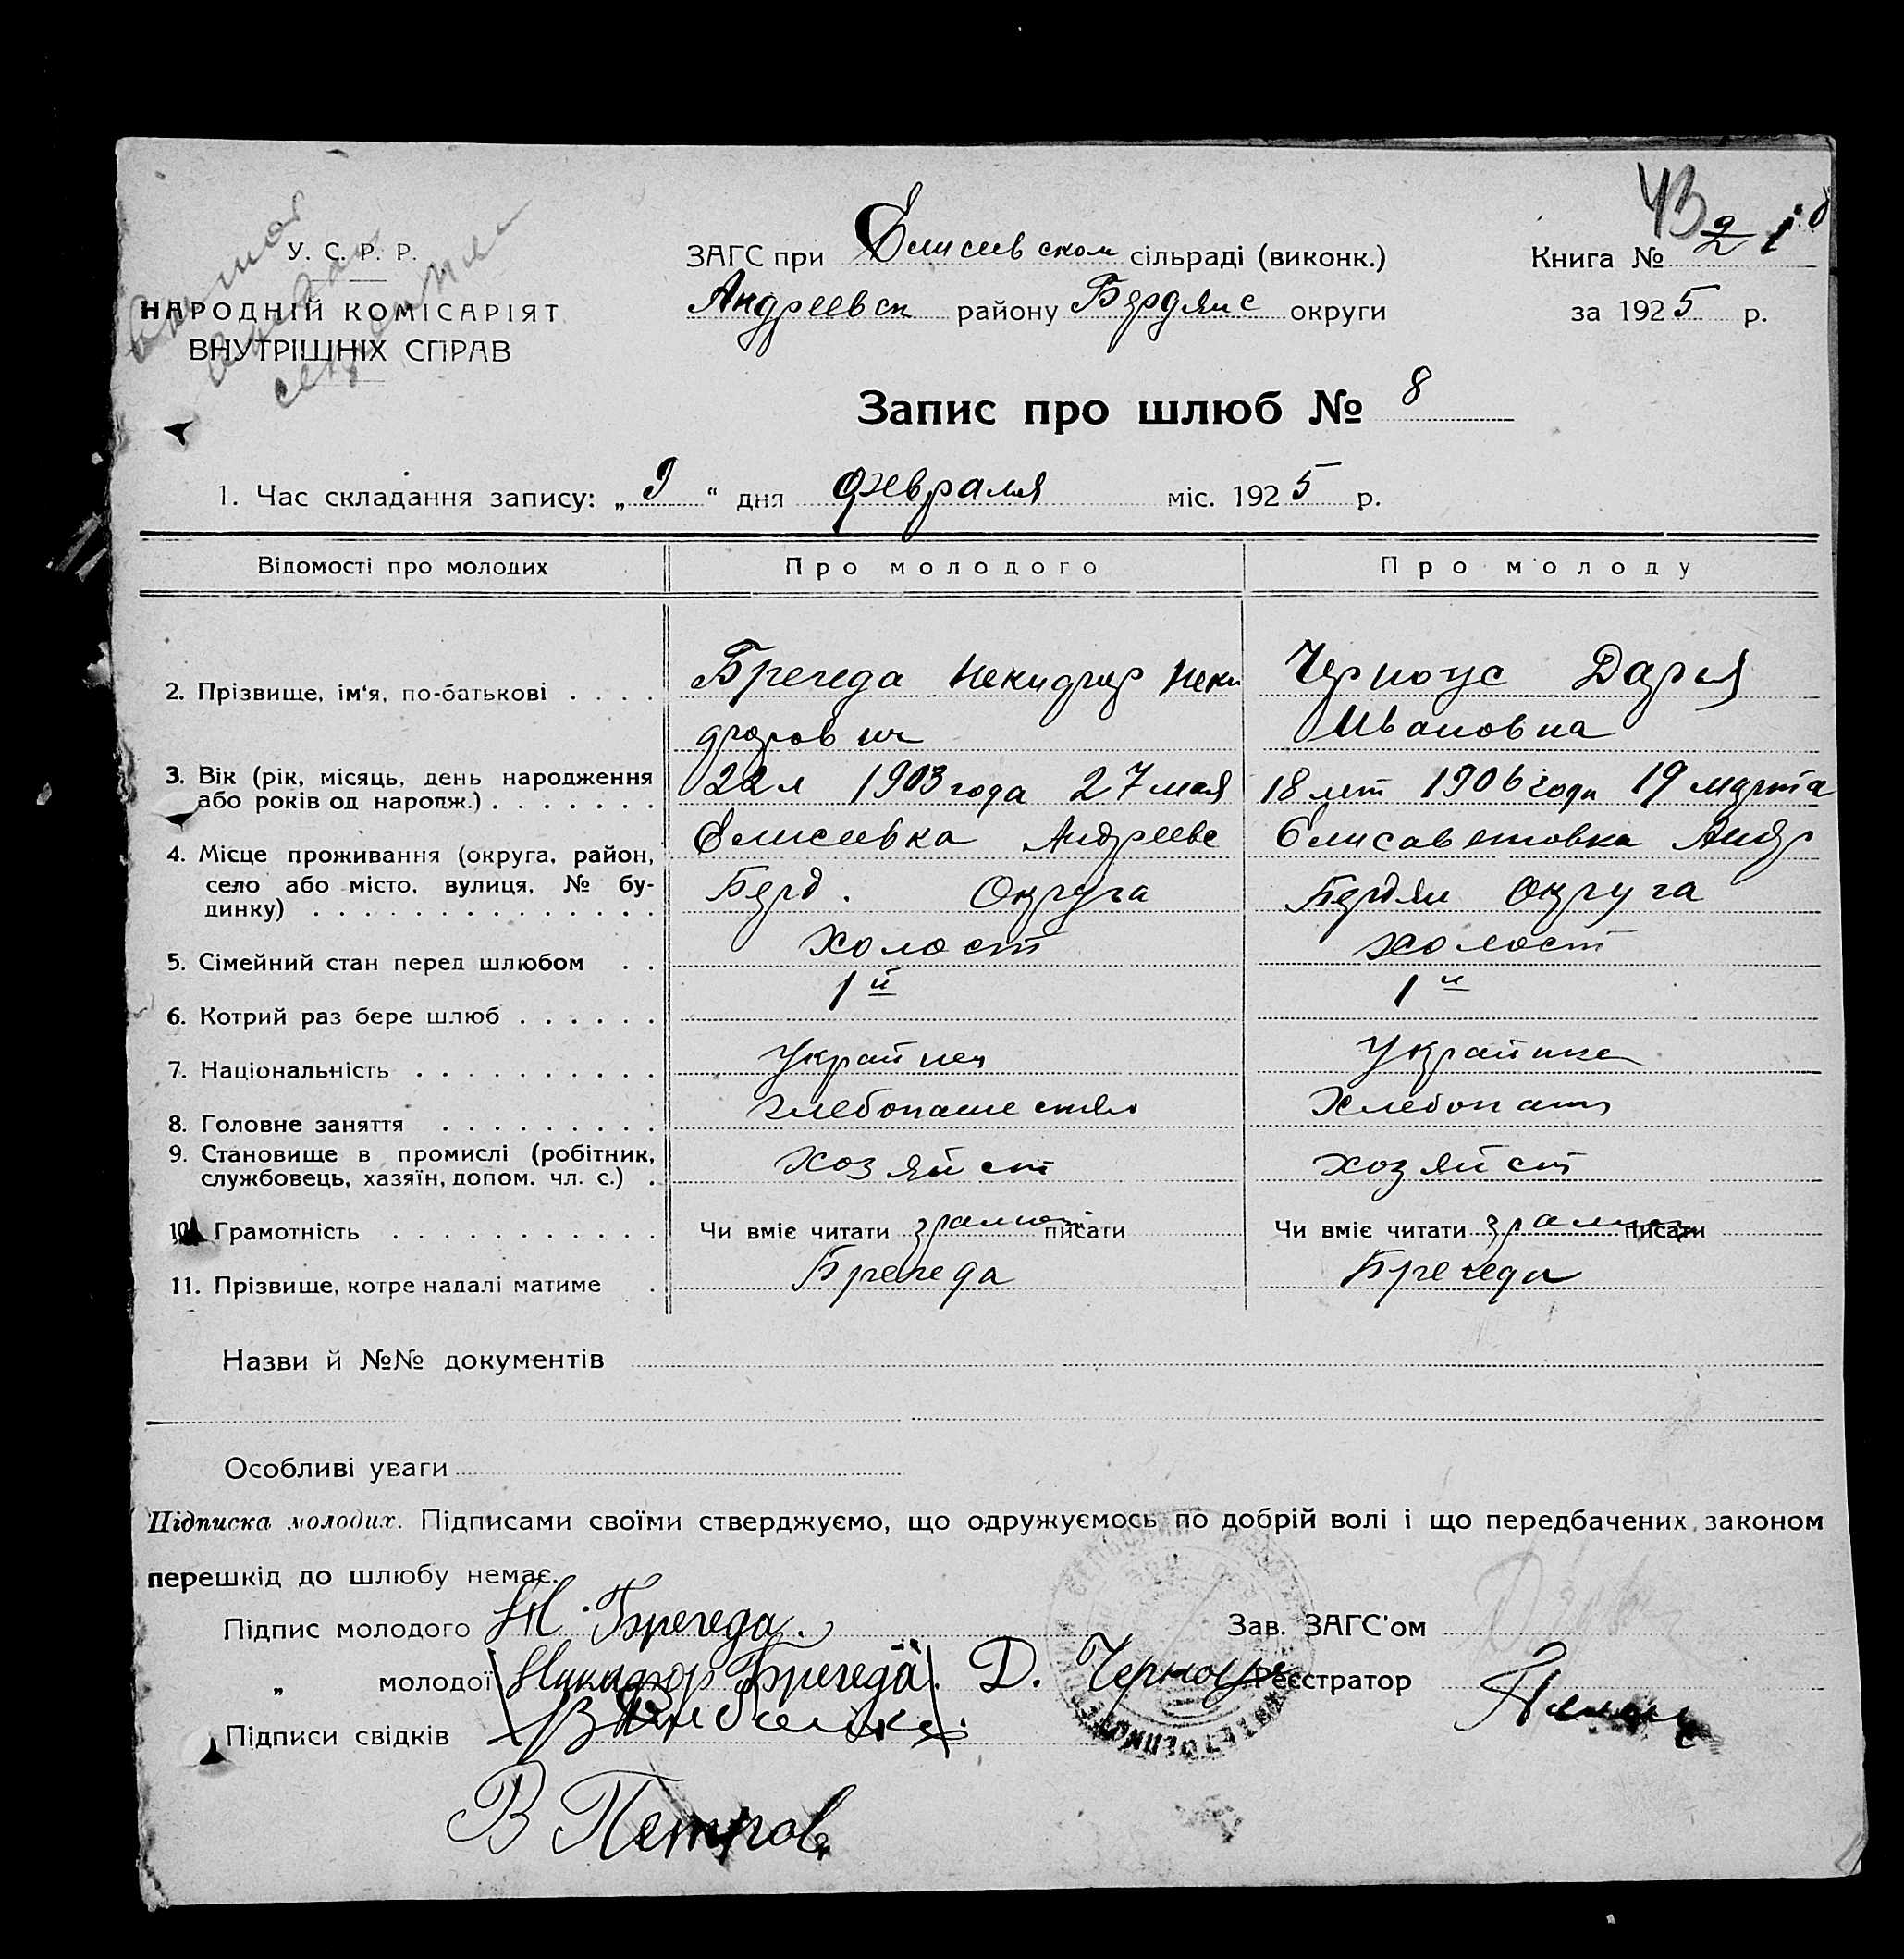 43
У. С. Р. Р.
ЗАГС при Елисеевском сільраді (виконк.)
Книга № 2
НАРОДНІЙ КОМІСАРІЯТ
Андреевск району Бердянс округи
за 1925 р.
ВНУТРІШНІХ СПРАВ
Запис про шлюб № 8
1. Час складання запису: „ “ дня февраля міс. 1925 р.
Відомості про молодих Про молодого Про молоду
2. Прізвище, ім‘я, по-батькові . . . . Брегеда Некидфор Неки Черноус Дария
дфоров ич Ивановна
3. Вік (рік, місяць, день народження 22 л 1903 года 27 мая 18 лет 1906 года 19 марта
або років од нарадж.) . . . . . . .
4. Місце проживання (округа, район, Елисеевка Андреевс Елисаветовка Андр
село або місто, вулиця, № бу- Берд. Округа Бердян Округа
динку) . . . . . . . . . . . . . .
5. Сімейний стан перед шлюбом . . холост холост
6. Котрий раз бере шлюб . . . . . . 1й 1й
7. Національність . . . . . . . . . . Украйнец Украйнка
8. Головне заняття . . . . . . . . . хлебопашество Хлебопаш
9. Становище в промислі (робітник, хозяйст хозяйст
службовець, хазяїн, допом. чл. с.) .
10. Грамотність . . . . . . . . . . . Чи вміє читати писати Чи вміє читати писати
11. Прізвище, котре надалі матиме . Брегеда Брегеда
Назви й №№ документів
Особливі уваги
Підписка молодих. Підписами своїми стверджуємо, що одружуємось по добрій волі і що передбачених законом
перешкід до шлюбу немає.
Підпис молодого Н. Брегеда. Зав. ЗАГС'ом
„ молодої Никифор Брегеда. Д. Черноус Реєстратор
Підписи свідків
В Петров